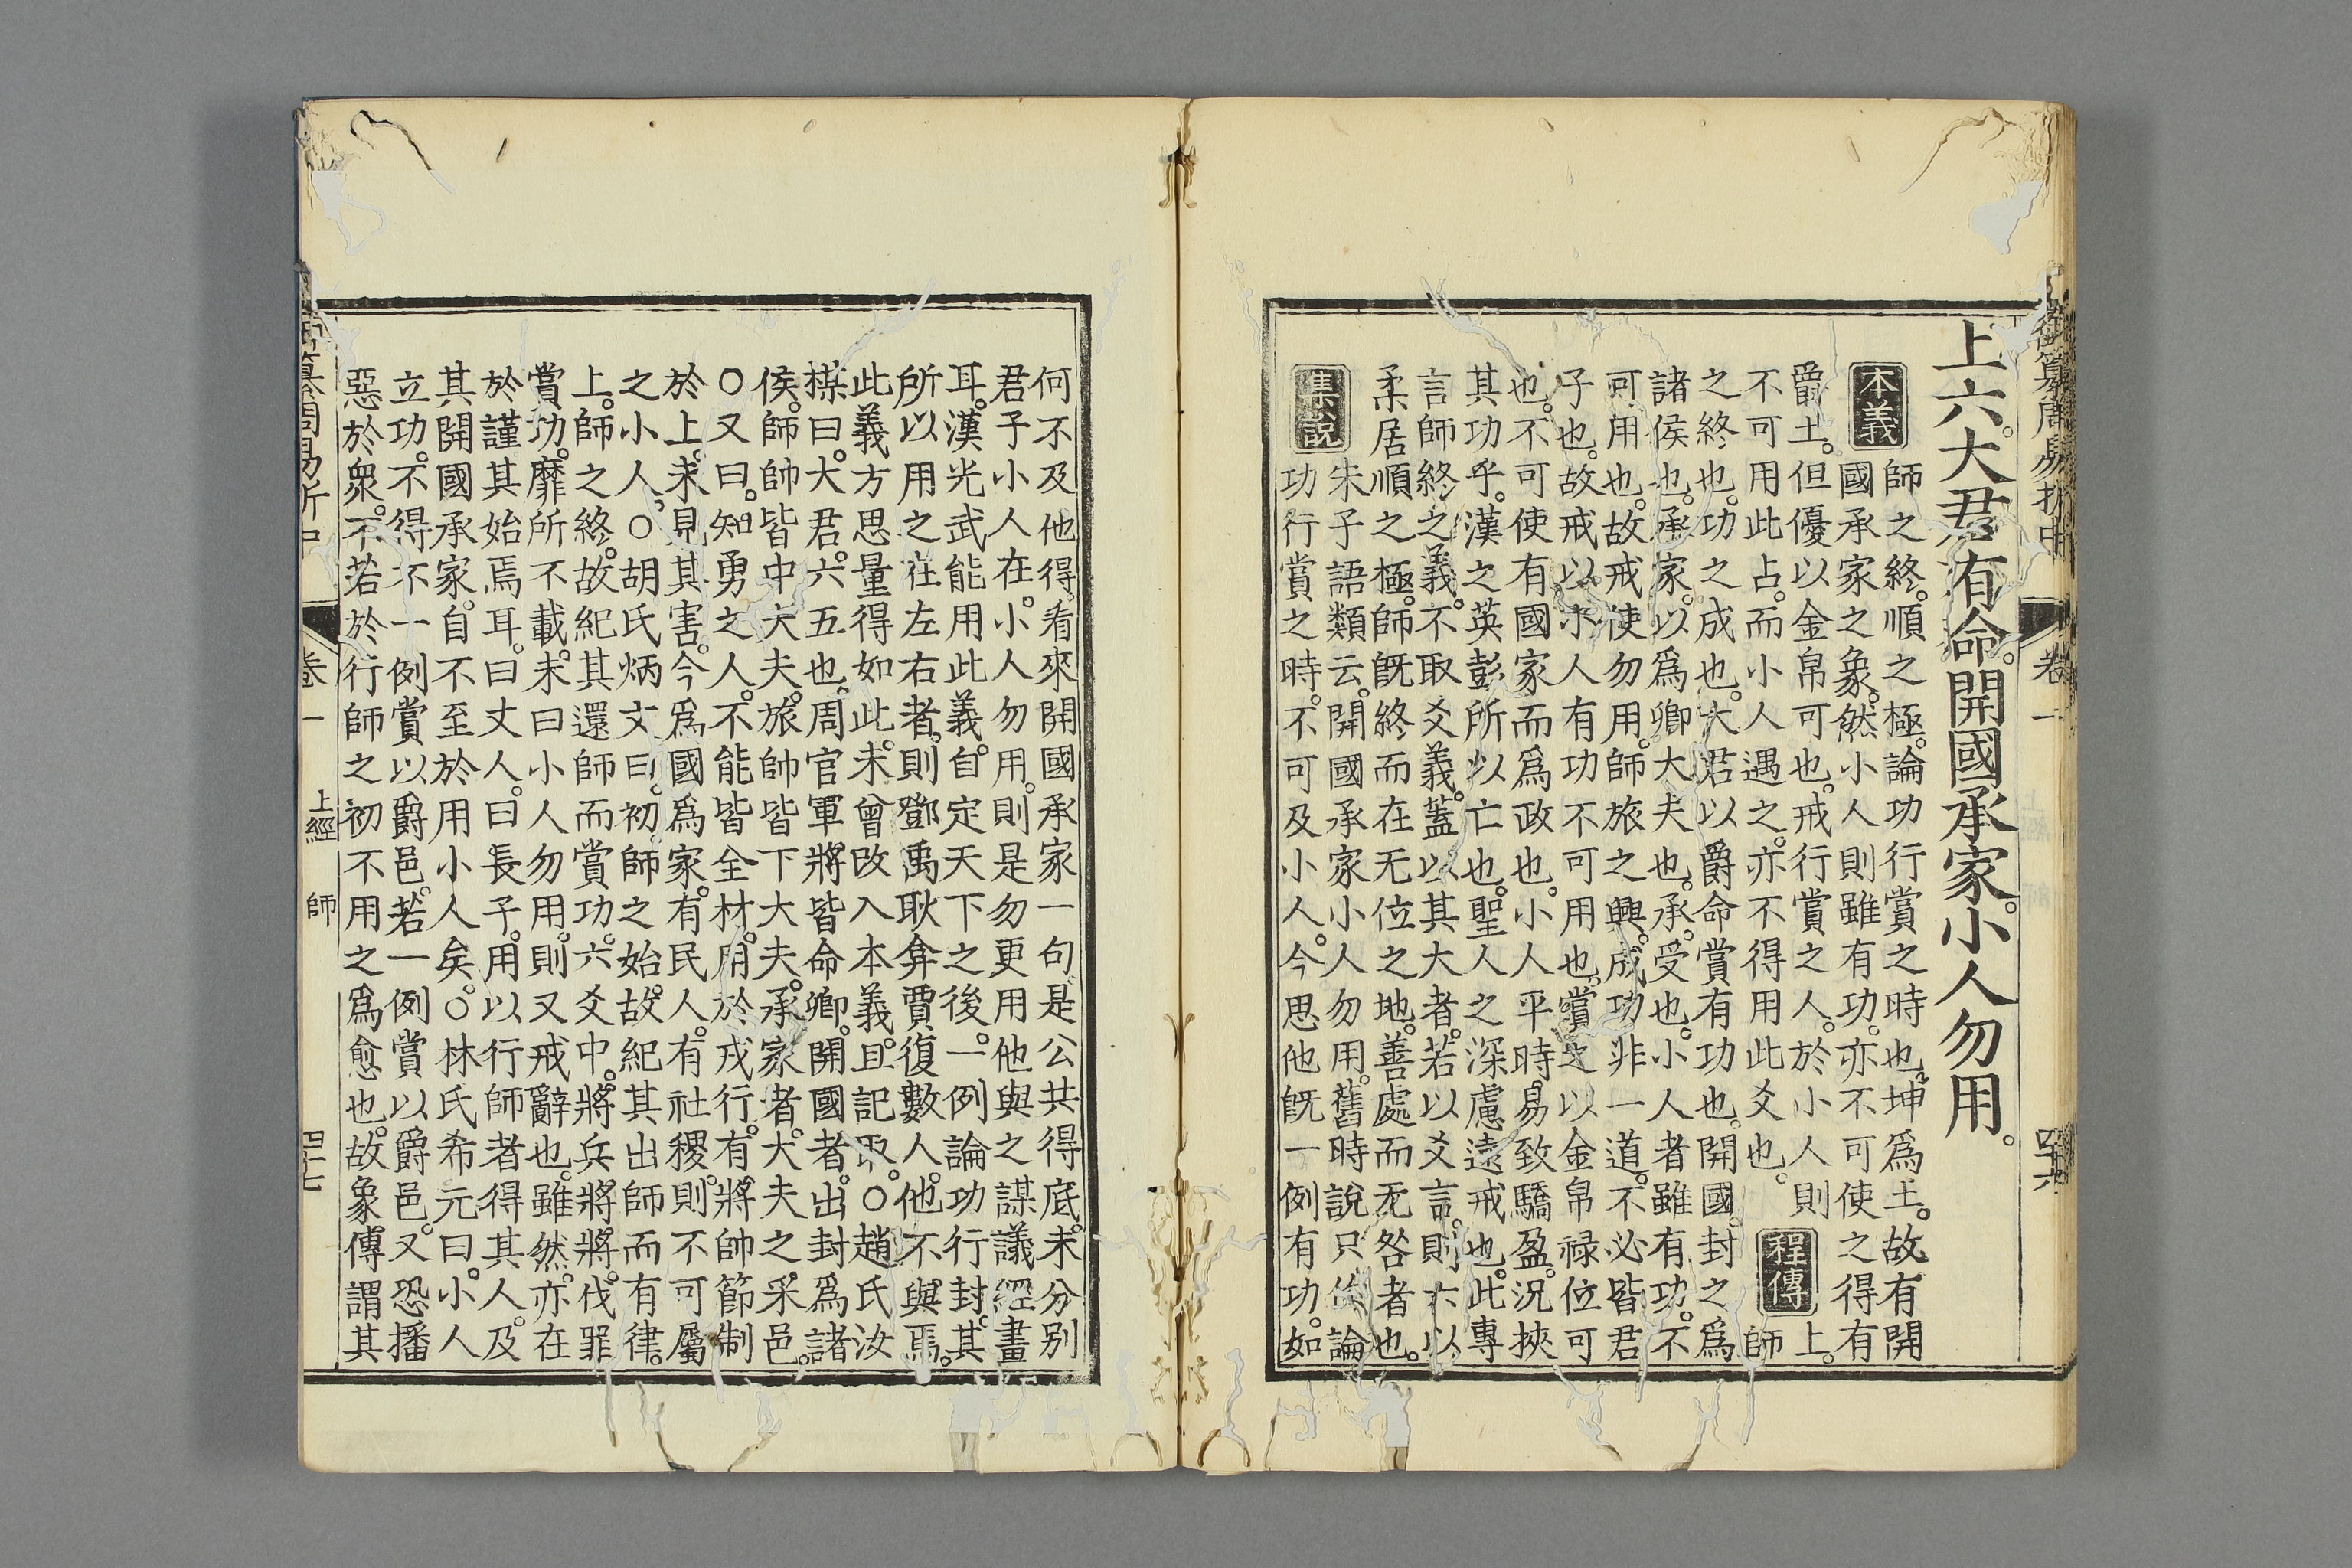 御纂周易折中 卷一 四十六
上六。大君有命。開國承家。小人勿用。
本義 師之終。順之極。論功行賞之時也。坤爲土。故有開
國承家之象。然小人則雖有功。亦不可使之得有
爵土。但優以金帛可也。戒行賞之人。於小人則
不可用此占。而小人遇之。亦不得用此爻也。 程傳 上。師
之終也。功之成也。大君以爵命賞有功也。開國。封之爲
諸侯也。承家。以爲卿大夫也。承。受也。小人者雖有功。不
可用也。故戒使勿用。師旅之興。成功非一道。不必皆君
子也。故戒以小人有功不可用也。賞之以金帛祿位可
也。不可使有國家而爲政也。小人平時。易致驕盈。況挾
其功乎。漢之英彭所以亡也。聖人之深慮遠戒也。此專
言師終之義。不取爻義。蓋以其大者。若以爻言。則六以
柔居順之極。師旣終而在无位之地。善處而无咎者也。
集說 朱子語類云。開國承家小人勿用。舊時說只作論
功行賞之時。不可及小人。今思他旣一例有功。如
何不及他得。看來開國承家一句。是公共得底。未分別
君子小人在。小人勿用。則是勿更用他與之謀議經畫
耳。漢光武能用此義。自定天下之後。一例論功行封。其
所以用之在左右者。則鄧禹耿弇賈復數人。他不與焉。
此義方思量得如此。未曾改入本義。且記取。○趙氏汝
楳曰。大君。六五也。周官軍將皆命卿。開國者。出封爲諸
侯。師帥皆中大夫。旅帥皆下大夫。承家者。大夫之采邑。
○又曰。知勇之人。不能皆全材。用於戎行。有將帥節制
於上。未見其害。今爲國爲家。有民人。有社稷。則不可屬
之小人。○胡氏炳文曰。初。師之始。故紀其出師而有律。
上。師之終。故紀其還師而賞功。六爻中。將兵將將。伐罪
賞功。靡所不載。末曰小人勿用。則又戒辭也。雖然。亦在
於謹其始焉耳。曰丈人。曰長子。用以行師者得其人。及
其開國承家。自不至於用小人矣。○林氏希元曰。小人
立功。不得不一例賞以爵邑。若一例賞以爵邑。又恐播
惡於衆。不若於行師之初不用之爲愈也。故象傳謂其
御纂周易折中 卷一 上經 師 四十七